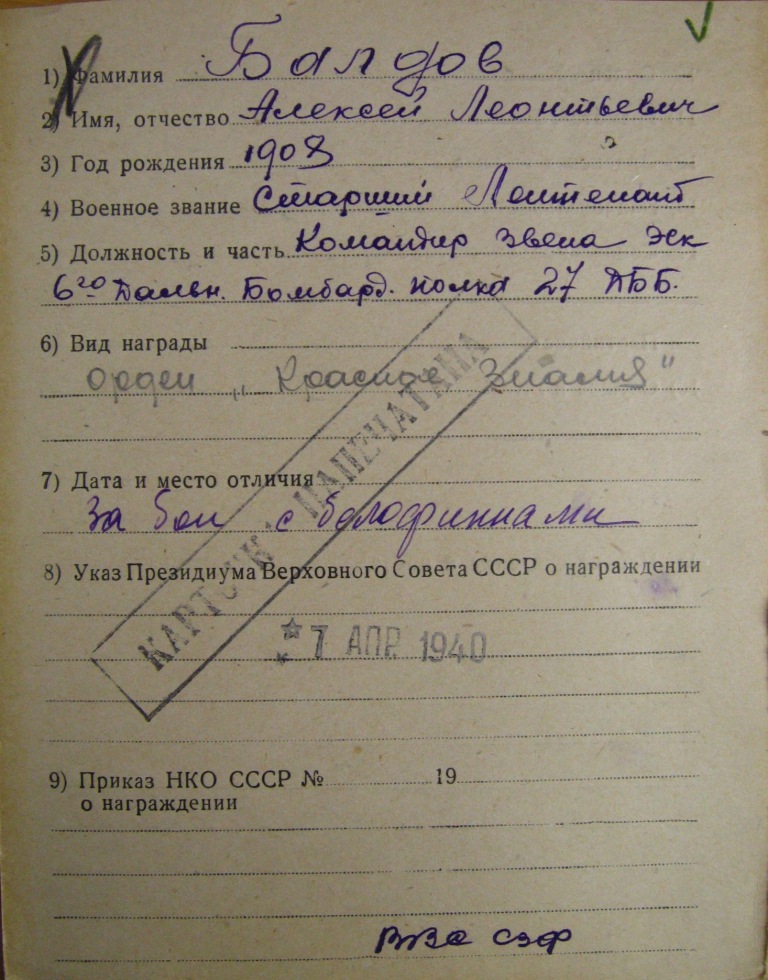 1) Фамилия Балдов
2) Имя, отчество Алексей Леонтьевич
3) Год рождения 1908
4) Военное звание Старший Лейтенант
5) Должность и часть Командир звена Эск
6го Дальн. Бомбард. полка 27 ДББ.
6) Вид награды
Орден „Красное Знамя"
КАРТОЧК НАПЕЧАТАНА
7) Дата и место отличия
За бои с белофиннами
8) Указ Президиума Верховного Совета СССР о награждении
7 АПР. 1940
9) Приказ НКО СССР № 19
о награждении
ВВС СЗФ